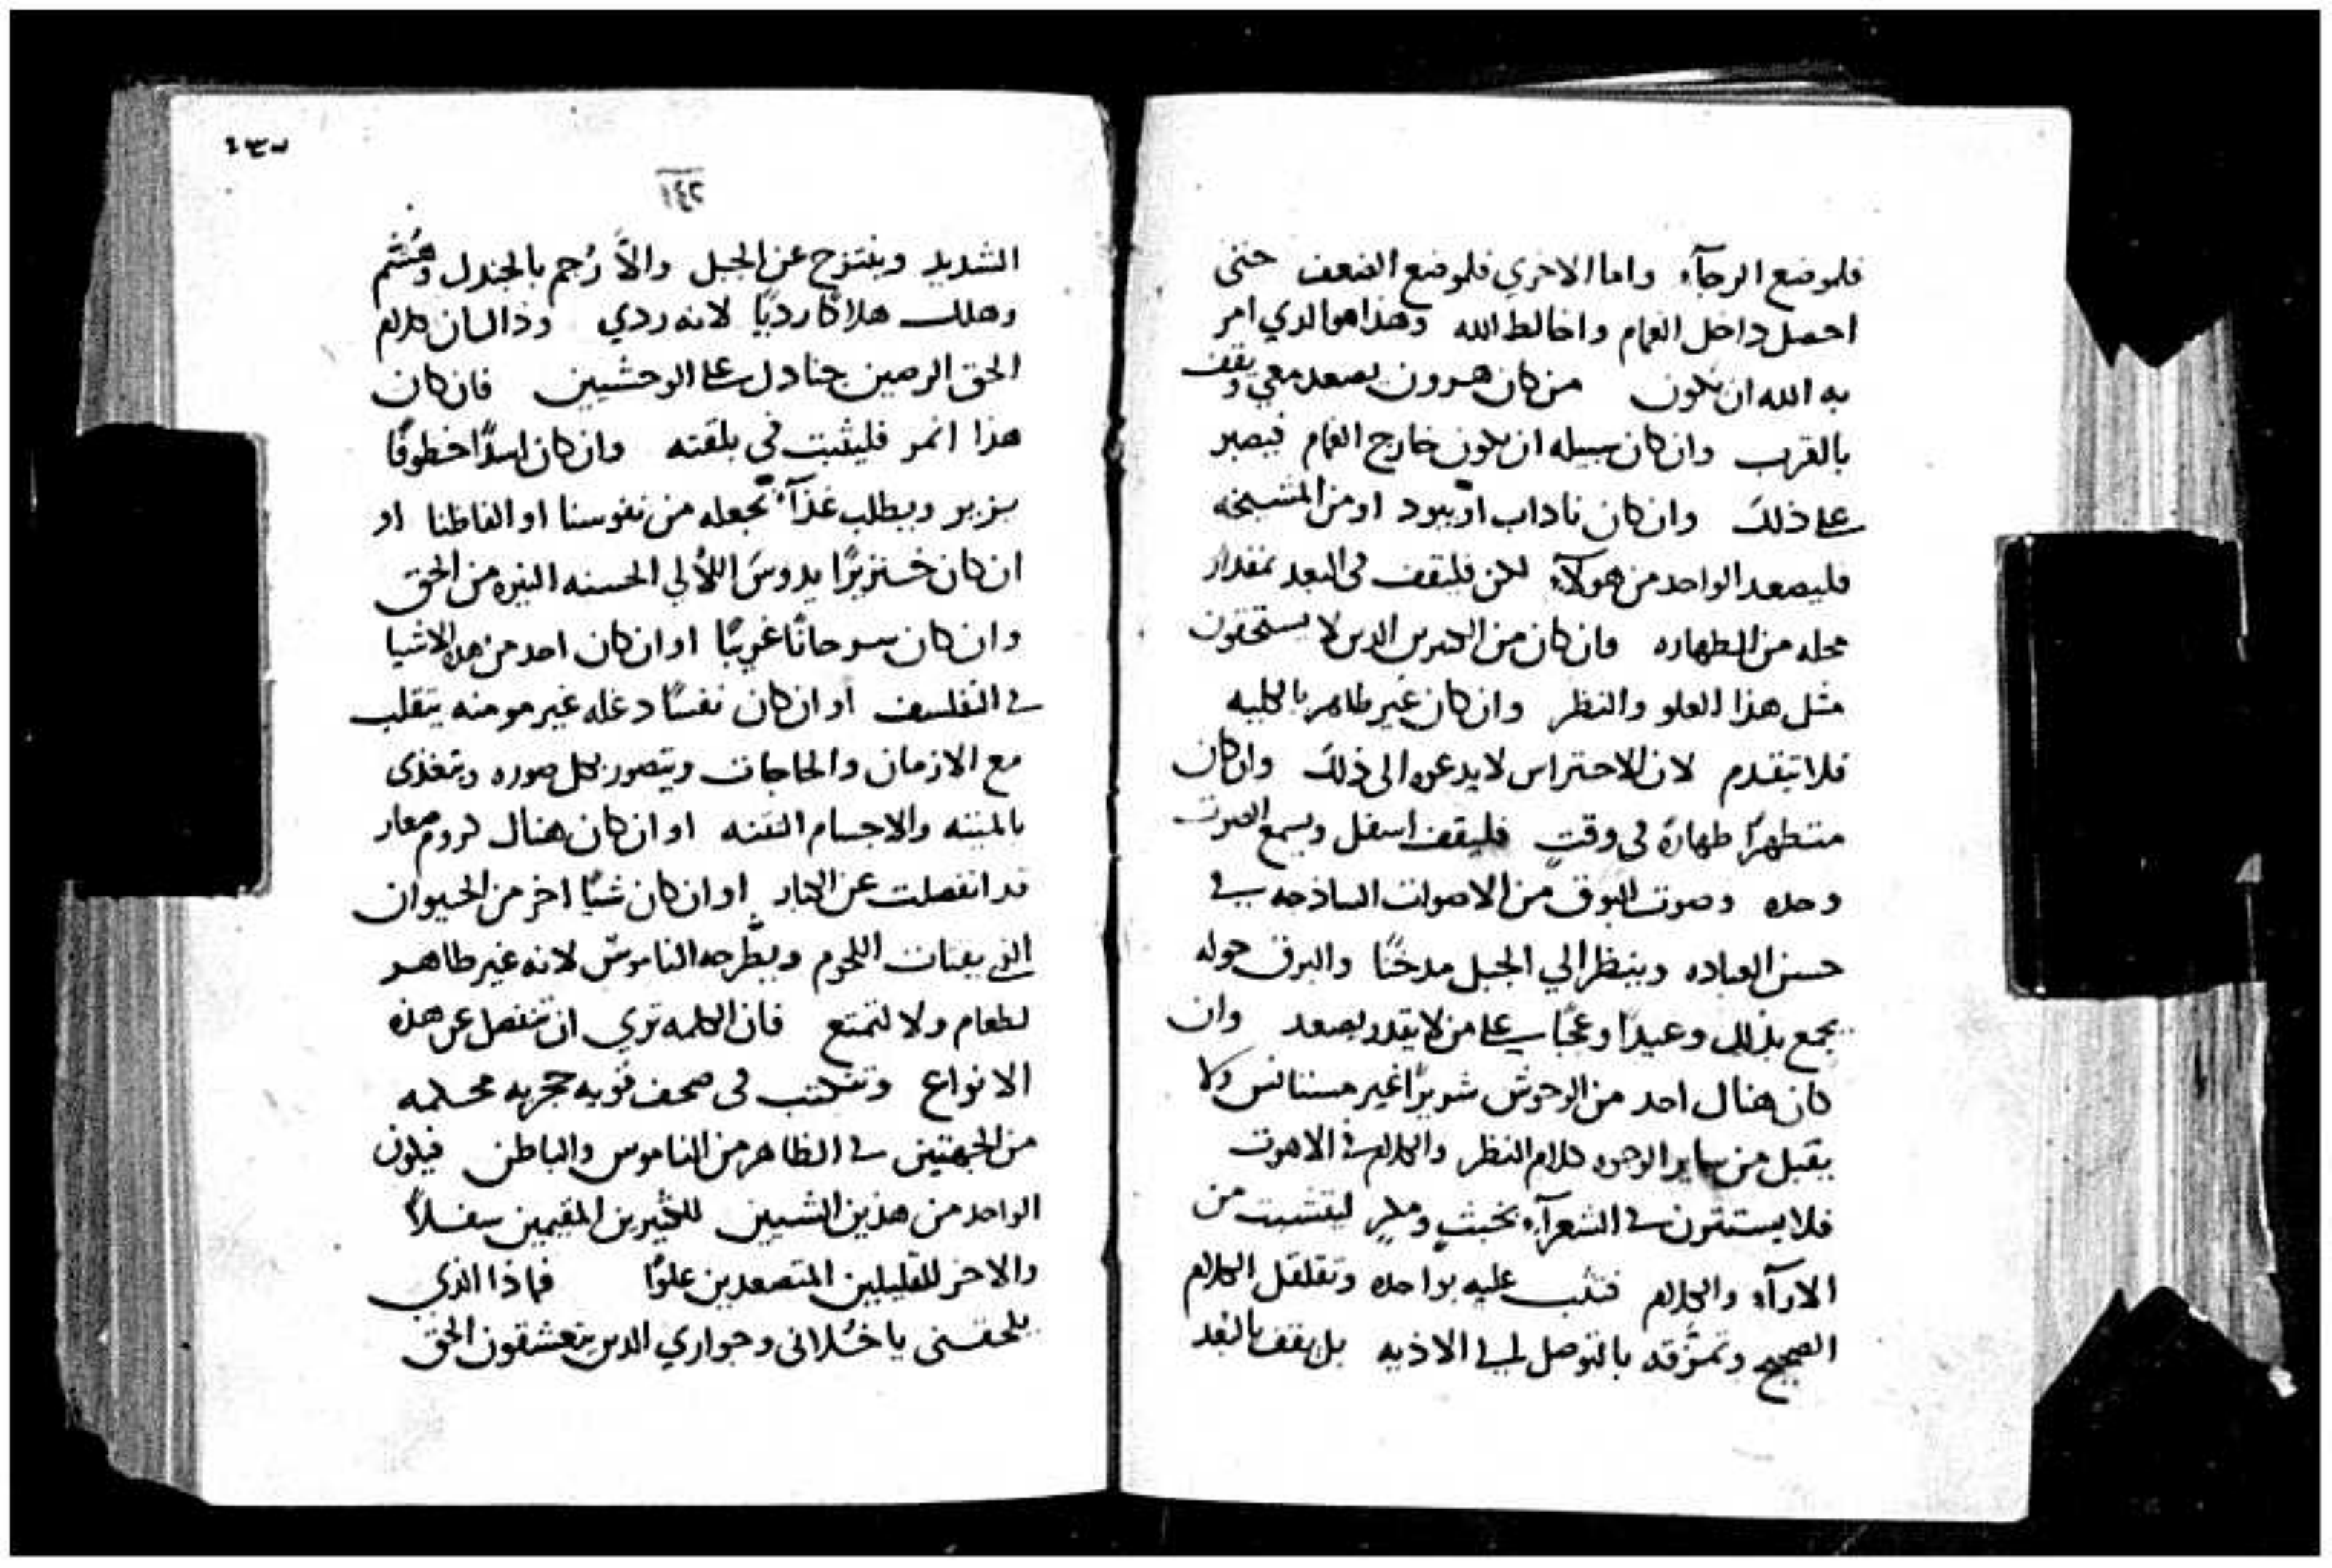 فلموضع الرجآء واما الاخري فلموضع الضعف حتى
احصل داخل الغمام واخالط الله وهذا هو الذي امر
به الله ان يكون من كان هرون يصعد معي ويقف
بالقرب وان كان سبيله ان يكون خارج الغمام فيصبر
على ذلك وان كان ناداب او يبود او من المشيخه
فليصعد الواحد من هولآء لكن فليقف في البعد بمقدار
محله من الطهاره فان كان من الكثيرين الدين لا يستحقون
مثل هذا العلو والنظر وان كان غير طاهر بالكليه
فلا يتقدم لان الاحتراس لا يدعوه الى ذلك وان كان
متطهرًا طهارةً في وقتٍ فليقف اسفل ويسمع الصوت
وحده وصوت البوق من الاصوات الساذجه في
حسن العباده وينظر الي الجبل مدخنًا والبرق حوله
يجمع بذلك وعيدًا وعجبًا على من لا يقدر يصعد وان
كان هناك احد من الوحوش شريرًا غير مستانس ولا
يقبل من ساير الوجوه كلام النظر والكلام في الاهوت
فلا يستترون في الشعرآء بخبثٍ ومكرٍ ليتشبث من
الارآء والكلام فيثب عليه بواحده وتقلقل الكلام
الصحيح وتمزقه بالتوصل الي الاذيه بل يقف بالبعد
٤٣٧
١٤٢
الشديد وينتزح عن الجبل والاّ رُجم بالجندل وهُشم
وهلك هلاكًا رديًا لانه ردي وذاك ان كلام
الحق الرصين جنادل على الوحشيين فان كان
هذا انمر فليثبت في بلقته وان كان اسدًا خطوفًا
يزير ويطلب غذآء تجعله من نفوسنا او الفاظنا او
ان كان خنزيرًا يدوس اللألي الحسنه النيره من الحق
وان كان سرحانًا غريبًا او ان كان احد من هذه الاشيا
في التفلسف او ان كان نفسًا دغله غير مومنه يتقلب
مع الازمان والحاجات ويتصور بكل صوره وتغذى
بالميته والاجسام النتنه او ان كان هناك كروم صغار
قد انفصلت عن الكبار او ان كان شيًا اخر من الحيوان
التي يقتات اللحوم ويطّرحه الناموس لانه غير طاهر
لطعام ولا لتمتع فان الكلمه تري ان تنفصل عن هذه
الانواع وتكتب في صحف قويه حجريه محكمه
من الجهتين في الظاهر من الناموس والباطن فيكون
الواحد من هذين الشيين للكثيرين المقيمين سفلاً
والاخر للقليلين المتصعدين علوًا فماذا الذي
يلحقني يا خُلاني وجواري الدين يتعشقون الحق